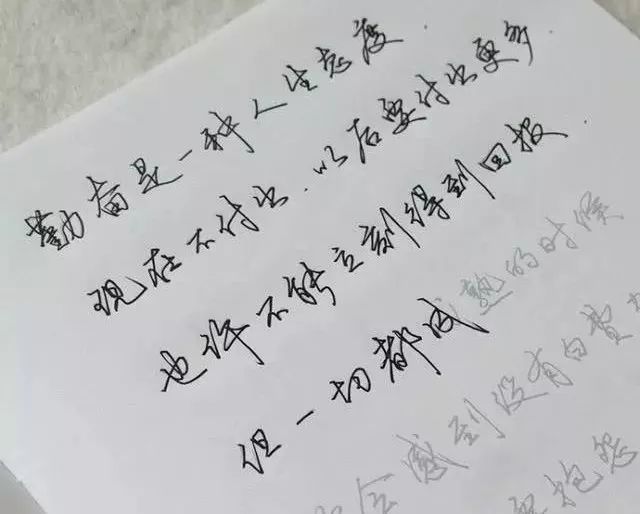 勤奋是一种人生态度.
现在不付出.以后要付出更多
也许不能立刻得到回报.
但一切都成熟的时候
会感到没有白费
抱怨